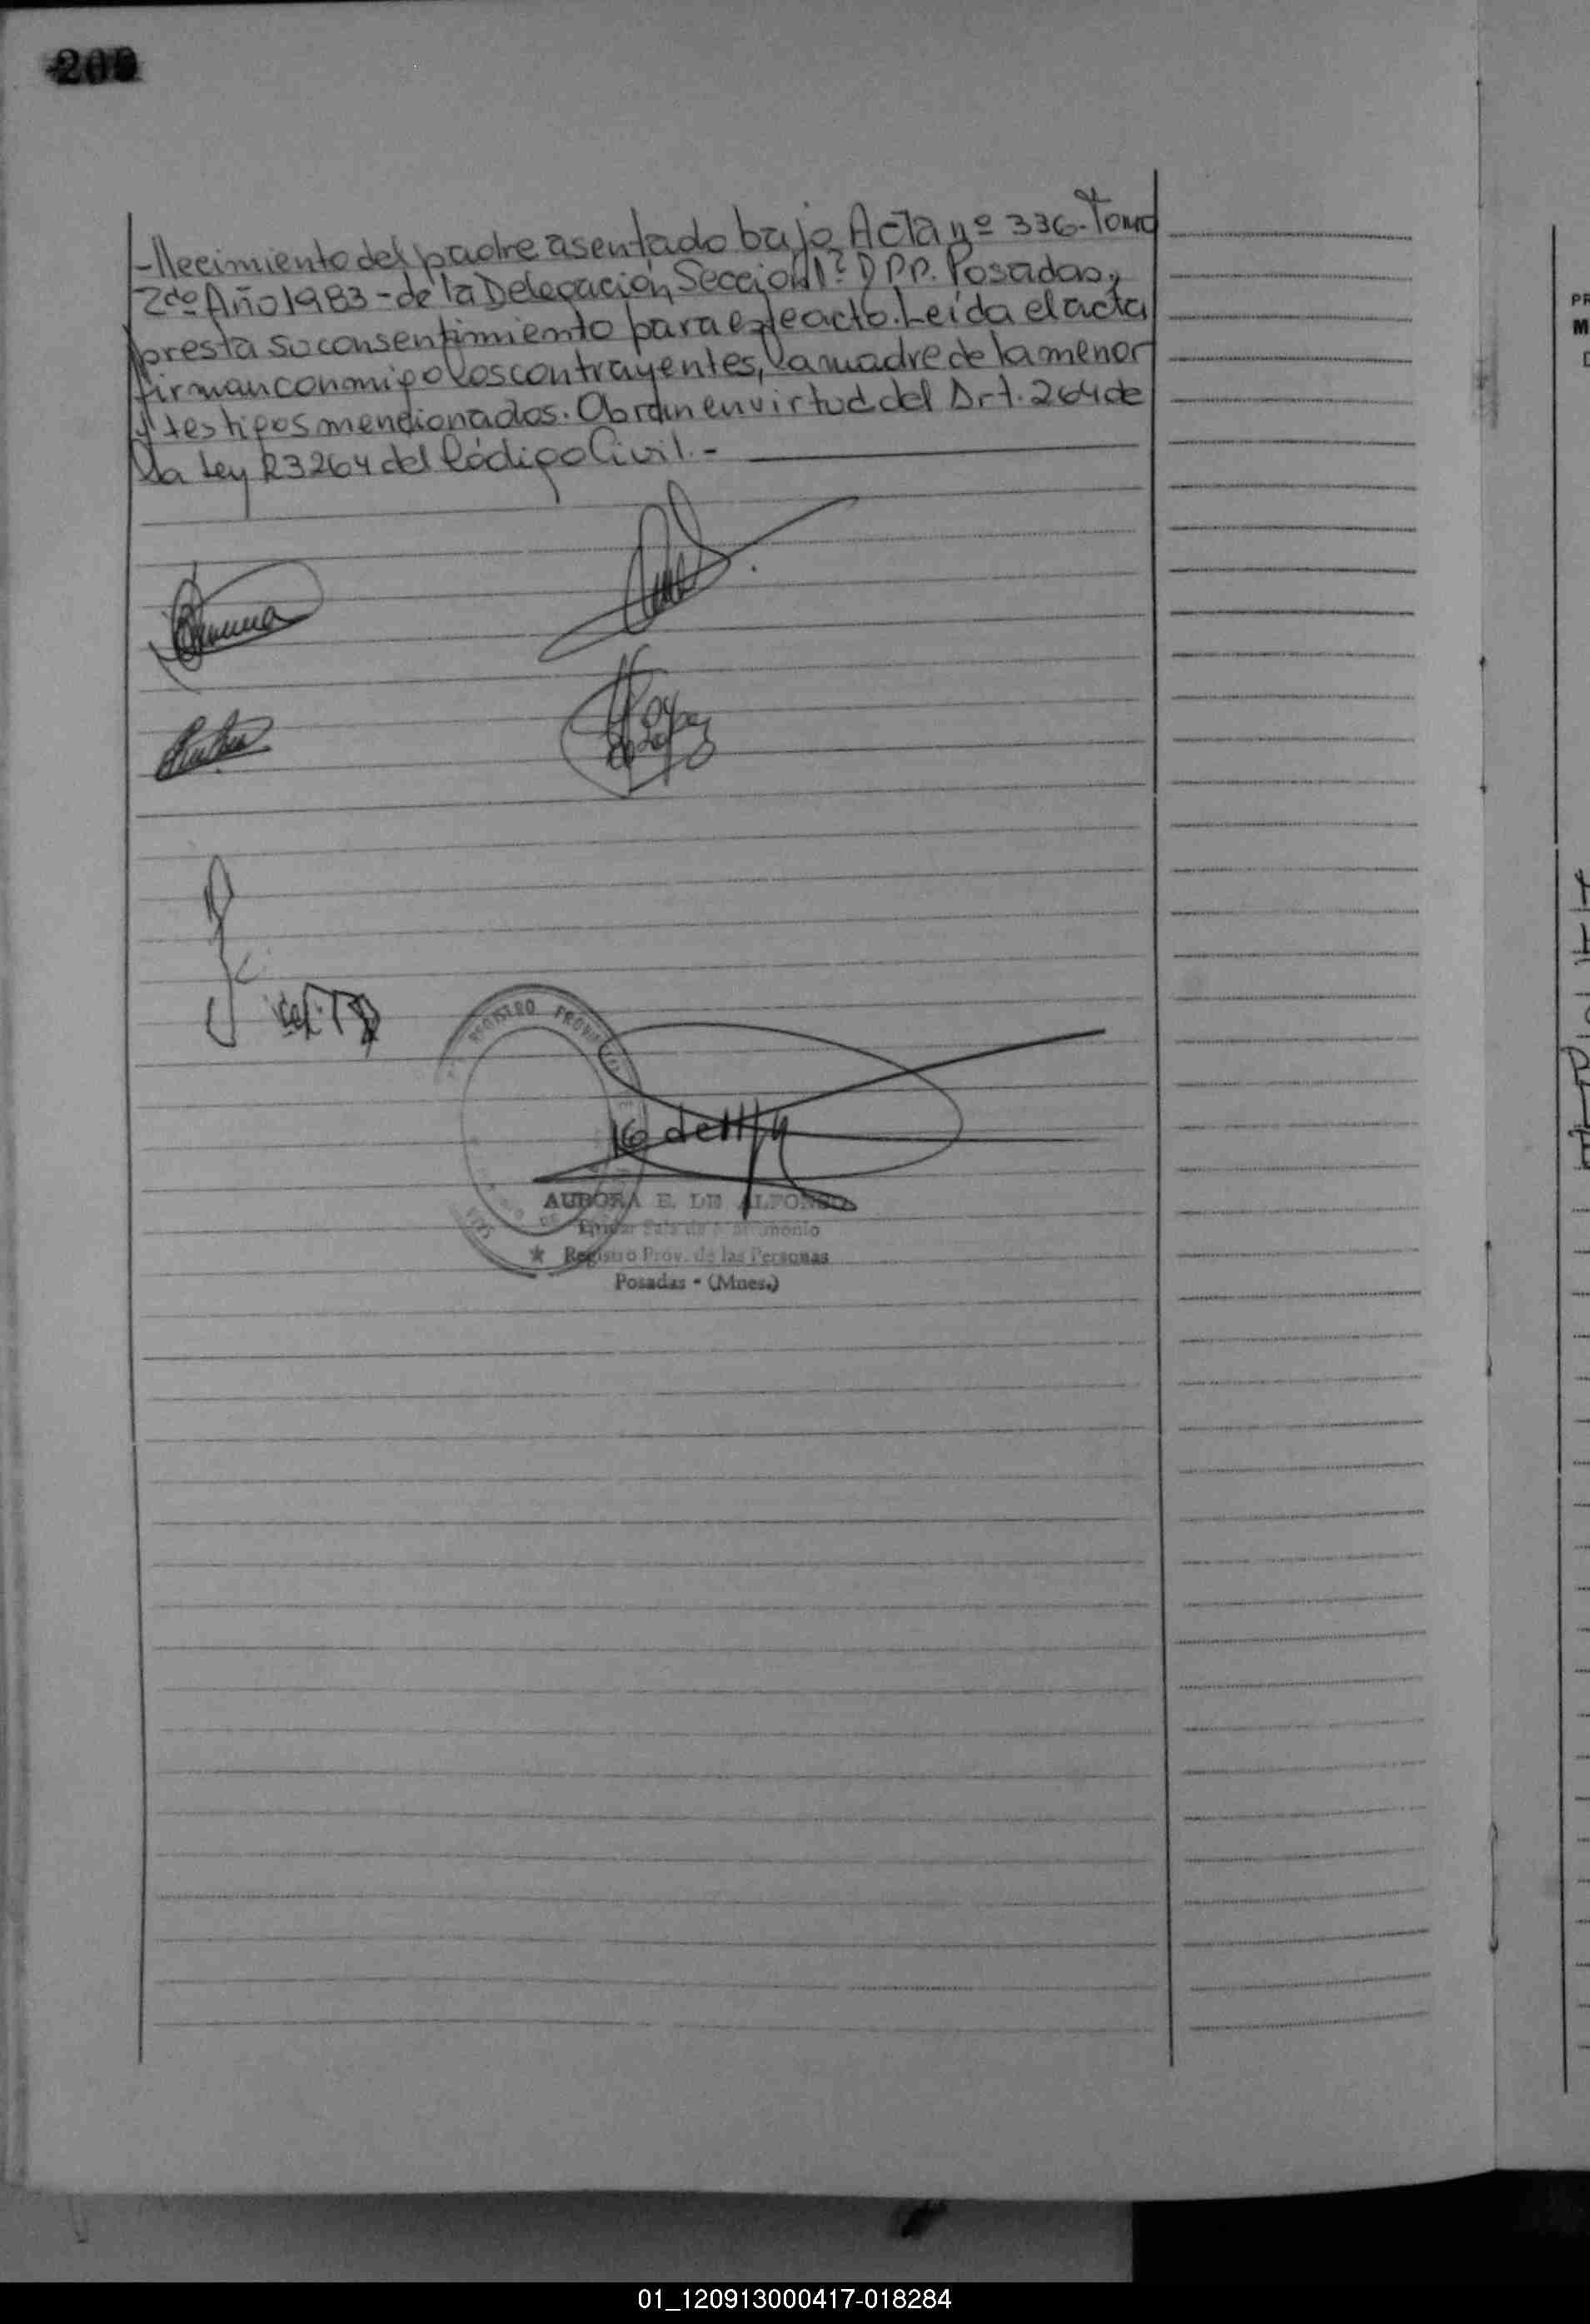 -llecimiento del padre asentado bajo Acta nº 336-Tomo
2do Año 1983-de la Delegación Sección 1ª D PP. Posadas,
presta su consentimiento para este acto. Leída el acta
firman conmigo los contrayentes, la madre de la menor
y testigos mencionados. Obran en virtud del Art. 264 de
la Ley 23264 del Código Civil.-
REGISTRO PROVINCIAL DE
16 de
AURORA E. DE ALFONSO
Sala de Matrimonio
★ Registro Prov. de las Personas
Posadas - (Mnes.)
PR
M
01_120913000417-018284